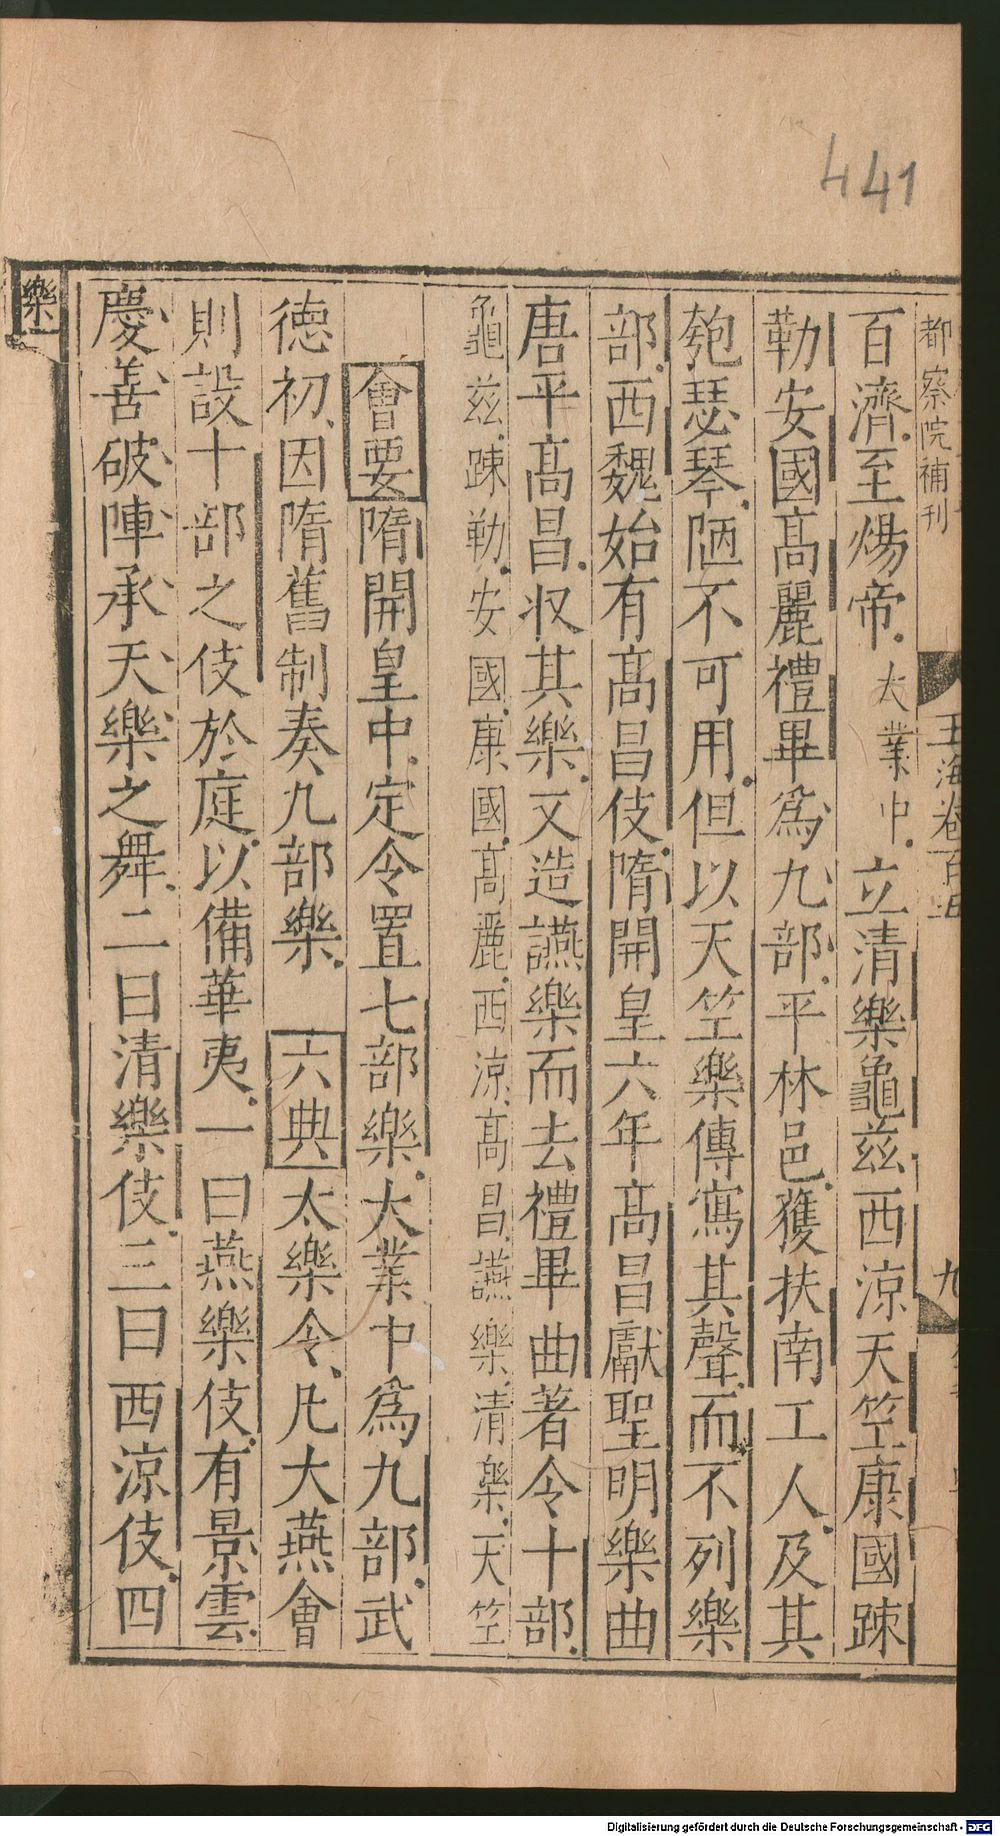 441
都察院補刊
玉海卷百五
九
百濟至煬帝大業中立清樂龜茲西涼天竺康國踈
勒安國髙麗禮畢爲九部平林邑獲扶南工人及其
匏瑟琴陋不可用但以天竺樂傳寫其聲而不列樂
部西魏始有髙昌伎隋開皇六年髙昌獻聖明樂曲
唐平髙昌収其樂又造讌樂而去禮畢曲著令十部
龜茲踈勒安國康國髙麗西涼髙昌讌樂清樂天竺
會要隋開皇中定令置七部樂大業中爲九部武
徳初因隋舊制奏九部樂 六典太樂令凡大燕會
則設十部之伎於庭以備華夷一曰燕樂伎有景雲
慶善破陣承天樂之舞二曰清樂伎三曰西涼伎四
樂
Digitalisierung gefördert durch die Deutsche Forschungsgemeinschaft - DFG